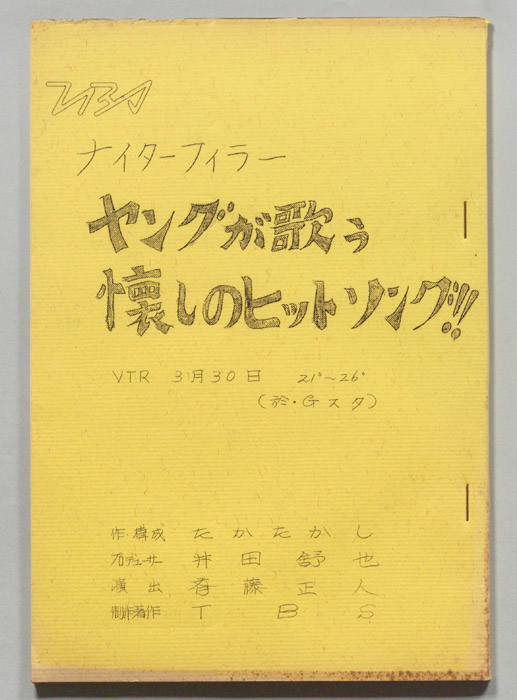 TBS
ナイターフィラー
ヤングが歌う
懐しのヒットソング!!!
VTR 3月30日 21°〜26°
(於・Gスタ)
作・構成 たかたかし
プロデューサー 井田舒也
演出 斉藤正人
制作著作 TBS